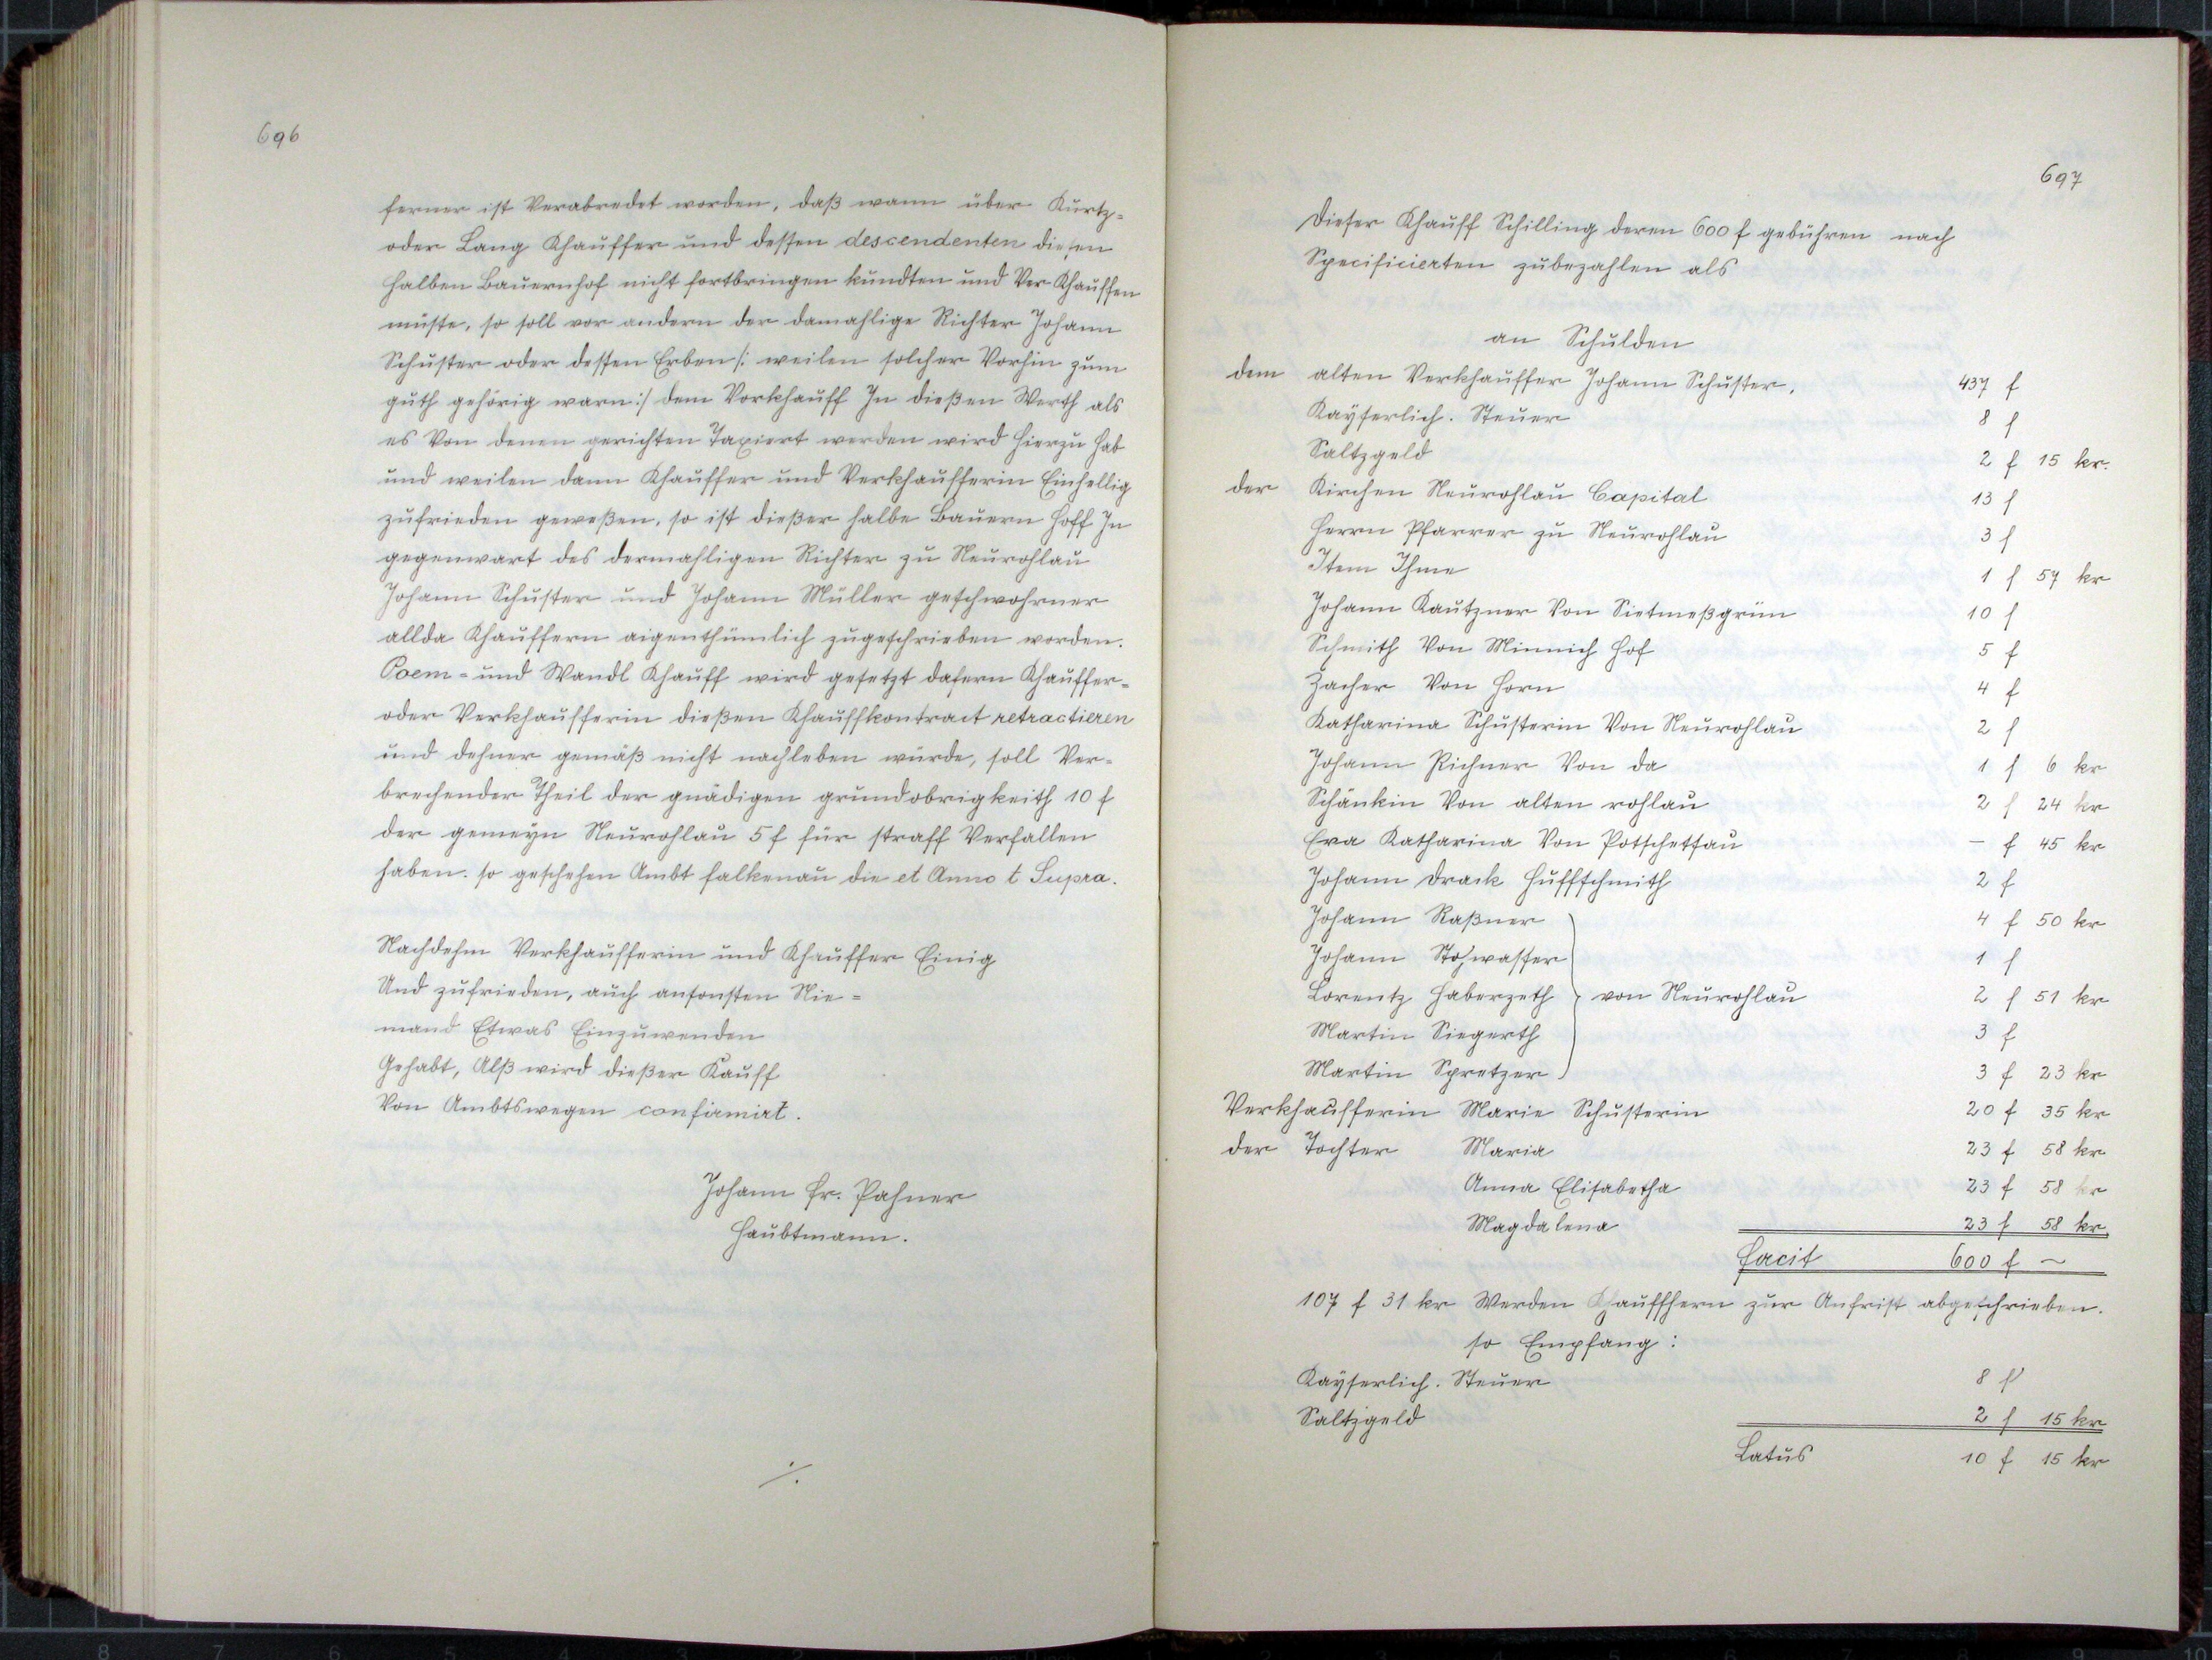 696
ferner ist Verabredet worden, daß wann über Kurtz-
oder Lang Khauffer und dessen descendenten diesen
halben Bauernhof nicht fortbringen kundten und Ver Khauffen
müste, so soll vor andern der damahlige Richter Johann
Schuster oder dessen Erben /: weilen solcher Vorhin zum
guth gehörig warn :/ dem Vorkhauff In dießen Werth als
es Von denen gerichten Taxiert werden wird hierzu hab
und weilen dann Khauffer und Verkhaufferin Einhellig
zufrieden geweßen, so ist dießer halbe Bauern Hoff In
gegenwart des dermahligen Richter zu Neurohlau
Johann Schuster und Johann Müller geschwohrner
allda Khauffern aigenthümlich zugeschrieben worden.
Poem- und Wandl Khauff wird gesetzt dafern Khauffer-
oder Verkhaufferin dießen Khauffkontract retractieren
und dehner gemäß nicht nachleben würde, soll Ver-
brechender Theil der gnädigen grundobrigkeith 10 f
der gemeyn Neurohlau 5 f für straff Verfallen
haben. so geschehen Ambt falkenau die et Anno t Supra.
Nachdehm Verkhaufferin und Khauffer Einig
Und zufrieden, auch ansonsten Nie-
mand Etwas Einzuwenden
Gehabt, Alß wird dießer Kauff
Von Ambtswegen confirmirt.
Johann Fr. Pahner
Haubtmann.
./.
697
Dieser Khauff Schilling deren 600 f gebühren nach
Specificierten zubezahlen als
an Schulden
dem alten Verkhauffer Johann Schuster, 437 f
Kayserlich. Steuer 8 f
Saltzgeld 2 f 15 kr.
der Kirchen Neurohlau Capital 13 f
Herrn Pfarrer zu Neurohlau 3 f
Item Ihme 1 f 57 kr
Johann Kautzner Von Sietmeßgrün 10 f
Schmith Von Minnich Hof 5 f
Zacher Von Horn 4 f
Katharina Schusterin Von Neurohlau 2 f
Johann Richner Von da 1 f 6 kr
Schänkin Von alten rohlau 2 f 24 kr
Eva Katharina Von Potschettau – f 45 kr
Johann Drack Huffschmith 2 f
Johann Raßner 4 f 50 kr
Johann Stohwasser 1 f
Lorentz Haberzeth } von Neurohlau 2 f 51 kr
Martin Siegerth 3 f
Martin Spretzer 3 f 23 kr
Verkhaufferin Marie Schusterin 20 f 35 kr
der Tochter Maria 23 f 58 kr
Anna Elisabetha 23 f 58 kr
Magdalena 23 f 58 kr.
Facit 600 f ~
107 f 31 kr Werden Khauffhern zur Anfrist abgeschrieben.
so Empfang :
Kayserlich. Steuer 8 f
Saltzgeld 2 f 15 kr
Latus 10 f 15 kr